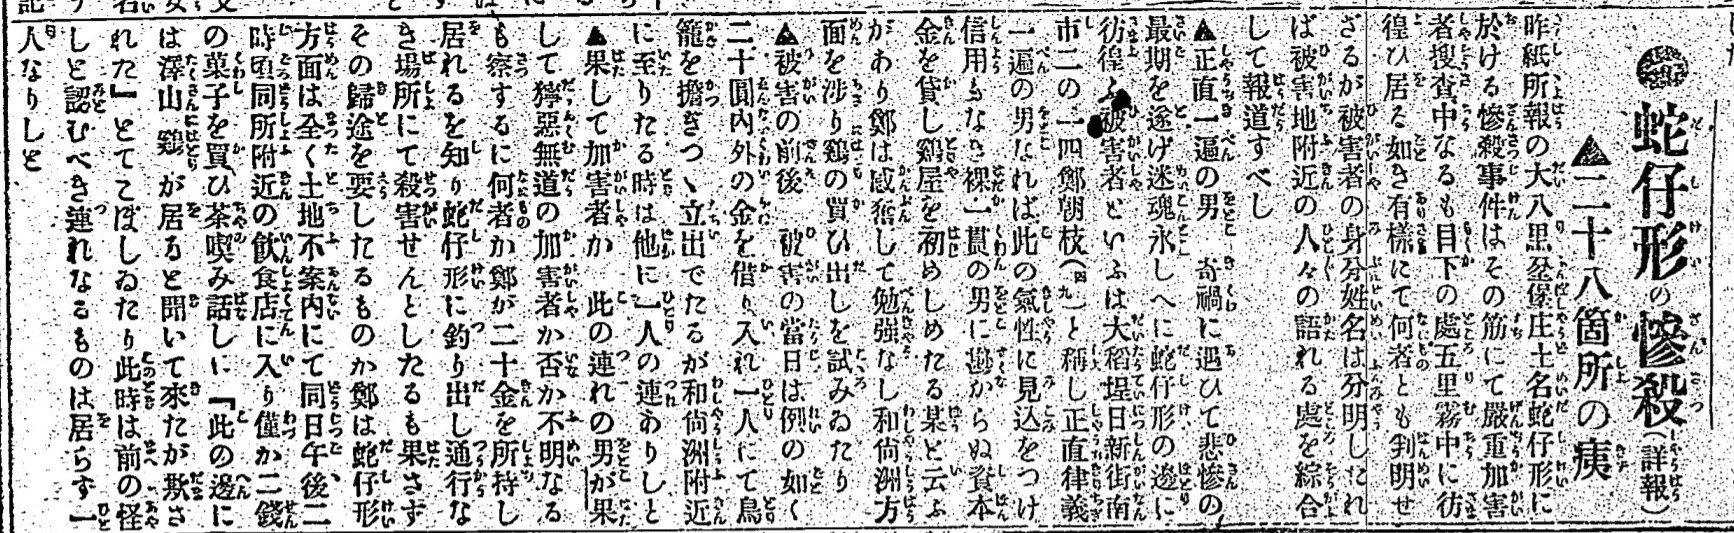 蛇仔形の慘殺（詳報）
▲二十八箇所の痍
昨紙所報の大八里坌堡庄土名蛇仔形に
於ける慘殺事件はその筋にて嚴重加害
者搜査中なるも目下の處五里霧中に彷
徨ひ居る如き有樣にて何者とも判明せ
ざるが被害者の身分姓名は分明したれ
ば被害地附近の人々の語れる處を綜合
して報道すべし
▲正直一遍の男　奇禍に遇ひて悲慘の
最期を遂げ迷魂永しへに蛇仔形の邊に
彷徨ふ被害者といふは大稻埕日新街南
市二の一四鄭朝枝（四九）と稱し正直律義
一遍の男なれば此の氣性に見込をつけ
信用もなき裸一貫の男に尠からぬ資本
金を貸し鷄屋を初めしめたる某と云ふ
があり鄭は感奮して勉強なし和尙洲方
面を涉り鷄の買ひ出しを試みゐたり
▲被害の前後　被害の當日は例の如く
二十圓內外の金を借り入れ一人にて鳥
籠を擔ぎつゝ立出でたるが和尙洲附近
に至りたる時は他に一人の連ありしと
▲果して加害者か　此の連れの男が果
して獰惡無道の加害者か否か不明なる
も察するに何者か鄭が二十金を所持し
居れるを知り蛇仔形に釣り出し通行な
き場所にて殺害せんとしたるも果さず
その歸途を要したるものか鄭は蛇仔形
方面は全く土地不案內にて同日午後二
時頃同所附近の飮食店に入り僅か二錢
の菓子を買ひ茶喫み話しに『此の邊に
は澤山鷄が居ると聞いて來たが欺さ
れた』とてこぼしゐたり此時は前の怪
しと認むべき連れなるものは居らず一
人なりしと